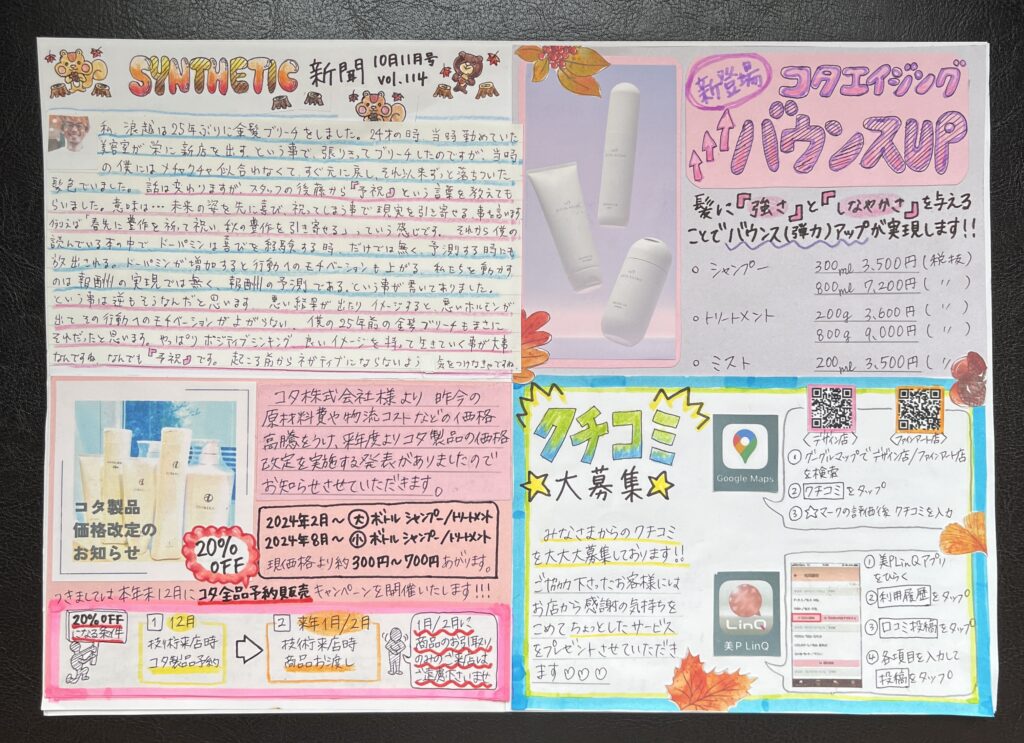 SYNTHETIC 新聞 10月11月号
vol.114
私、浪越は25年ぶりに金髪ブリーチをしました。24才の時、当時勤めていた
美容室が栄に新店を出すという事で、張りきってブリーチしたのですが、当時
の僕にはメチャクチャ似合わなくて、すぐ元に戻し、それ以来ずっと落ちついた
髪色でいました。話は変わりますが、スタッフの後藤から『予祝』という言葉を教えても
らいました。意味は…未来の姿を先に喜び、祝ってしまう事で現実を引き寄せる事を言います
行うえば「春先に豊作を祈って祝い秋の豊作を引き寄せる」、ていう感じです。それから僕の
読んでいる本の中で、ドーパミンは喜びを経験する時、だけでは無く、予測する時にも
放出される。ドーパミンが増加すると行動へのモチベーションも上がる。私たちを動かす
のは報酬の実現では無く、報酬の予測である、という事が書いてありました。
という事は逆もそうなんだと思います。悪い結果が出たりイメージすると、悪いホルモンが
出てその行動へのモチベーションが上がらない。僕の25年前の金髪ブリーチもまさに
それだったと思います。やっぱりポジティブシンキング、良いイメージを持って生きていく事が大事
なんですね なんでも『予祝』です。起こる前からネガティブにならないよう 気をつけなきゃですね
新登場
コタエイジング
バウンスUP
髪に『強さ』と『しなやかさ』を与える
ことでバウンス(弾力)アップが実現します!!
○ シャンプー 300ml 3,500円(税抜)
800ml 7,200円( 〃 )
○トリートメント 200g 3,600円( 〃 )
800g 9,000円( 〃 )
○ ミスト 200ml 3,500円( 〃 )
コタ製品
価格改定の
お知らせ
コタ株式会社様より 昨今の
原材料費や物流コストなどの価格
高騰をうけ、来年度よりコタ製品の価格
改定を実施する発表がありましたので
お知らせさせていただきます。
2024年2月〜 大 ボトル シャンプー/トリートメント
2024年8月〜 小 ボトル シャンプー/トリートメント
現価格より約300円〜700円あがります。
20%
OFF
つきましては本年末12月にコタ全品予約販売キャンペーンを開催いたします!!!
20%OFF
になる条件
1 12月
技術来店時
コタ製品予約
2 来年1月/2月
技術来店時
商品お渡し
1月/2月に
商品のお引取り
のみのご来店は
ご遠慮下さいませ
クチコミ
大募集
みなさまからのクチコミ
を大大大募集しております!!
ご協力下さったお客様には
お店から感謝の気持ちを
こめてちょっとしたサービス
をプレゼントさせていただき
ます♡♡♡
Google Maps
〈デザイン店〉
〈ファインアート店〉
① グーグルマップでデザイン店/ファインアート店
を検索
② クチコミをタップ
③ ☆マークの評価後 クチコミを入力
LinQ
美P LinQ
① 美PLinQアプリ
をひらく
② 利用履歴をタップ
③ 口コミ投稿をタップ
④ 各項目を入力して
投稿をタップ